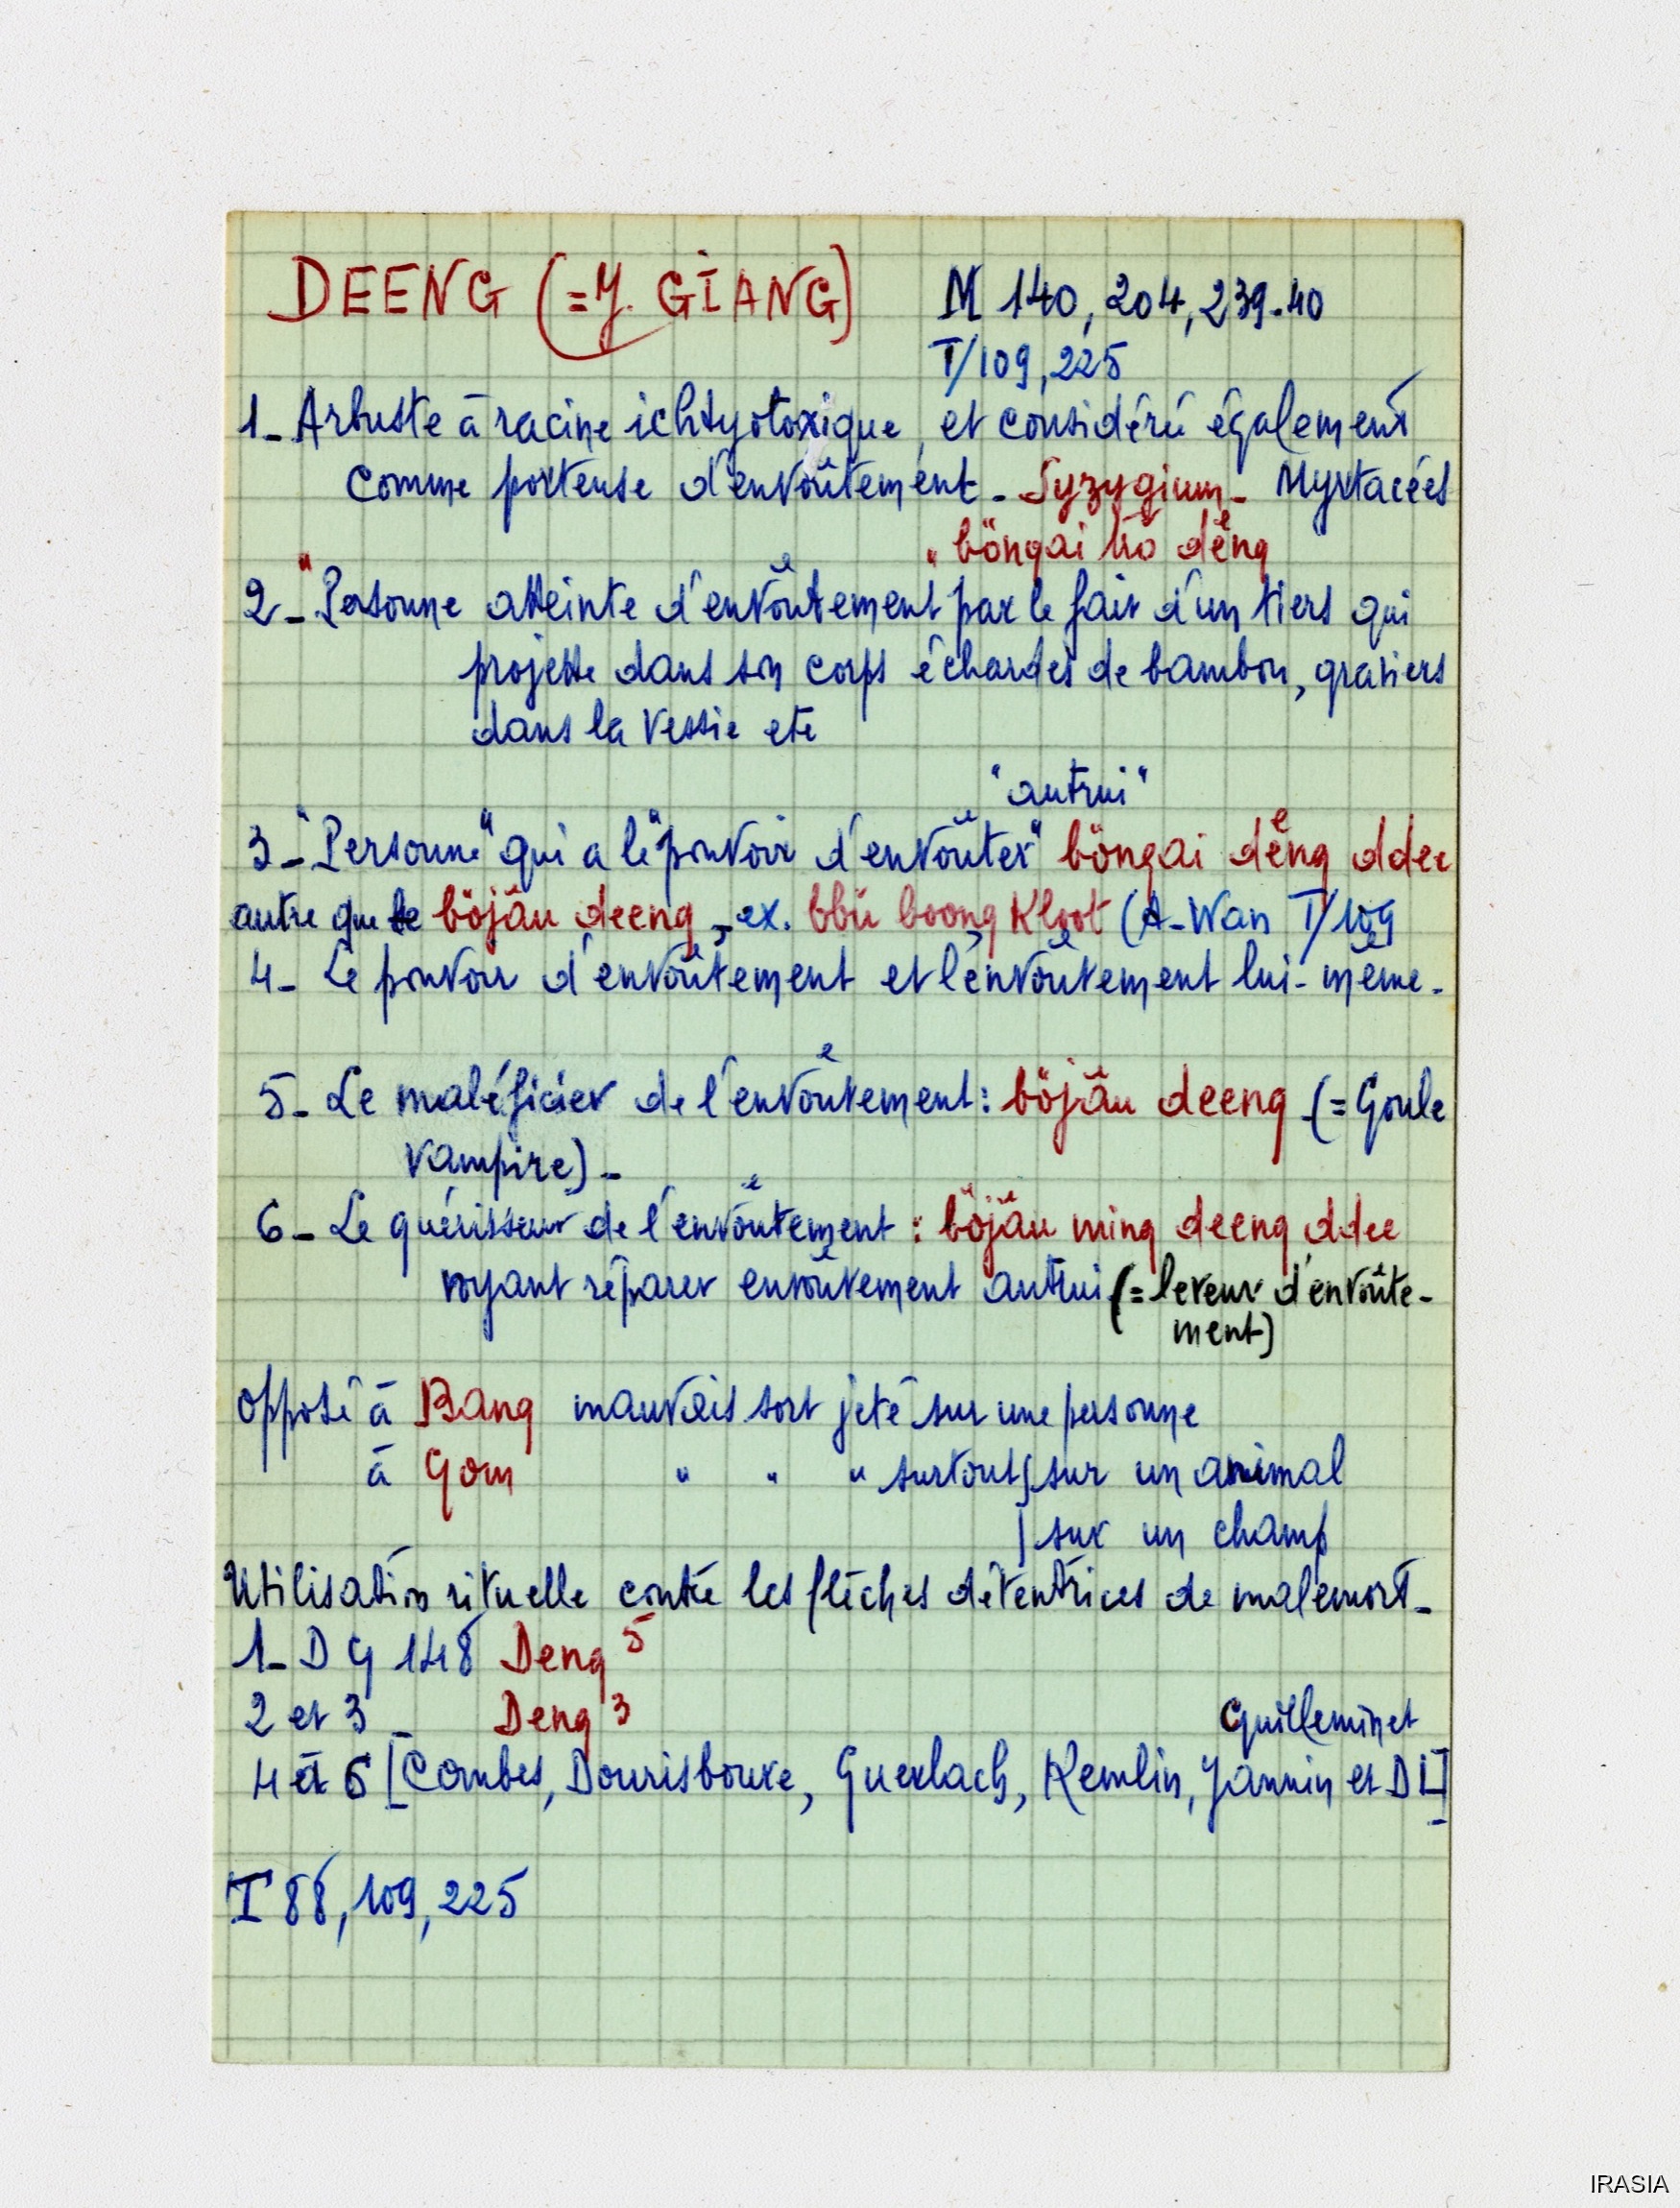 DEENG (=Y. GIANG) M 140, 204, 239-40
T/109, 225
1_ Arbuste à racine ichtyotoxique, et considéré également
comme porteuse d'envoûtement _ Syzygium _ Myrtacées
" böngai dĕng
2_ "Personne atteinte d'envoûtement par le fait d'un tiers qui
projette dans son corps échardes de bambou, graviers
dans la vessie etc
"autrui"
3_ "Personne" qui a le "pouvoir d'envoûter" böngai dĕng ddee
autre que le böjâu deeng, ex. bbŭ boong Kloot (A-Wan T/109
4_ Le pouvoir d'envoûtement et l'envoûtement lui-même.
5_ Le maléficier de l'envoûtement: böjâu deeng (= Goule
vampire) _
6_ Le guérisseur de l'envoûtement : böjâu ming deeng ddee
voyant réparer envoûtement autrui (= leveur d'envoûte-
ment)
opposé à Bang mauvais sort jeté sur une personne
à Gom " " " surtout { sur un animal
| sur un champ
Utilisation rituelle contre les flèches détentrices de malemort _
1_ D G 148 Deng 5
2 et 3 _ Deng 3 Guilleminet
4 à 6 [Combes, Dourisboure, Guerlach, Kemlin, Jannin et DL]
T 88, 109, 225
IRASIA